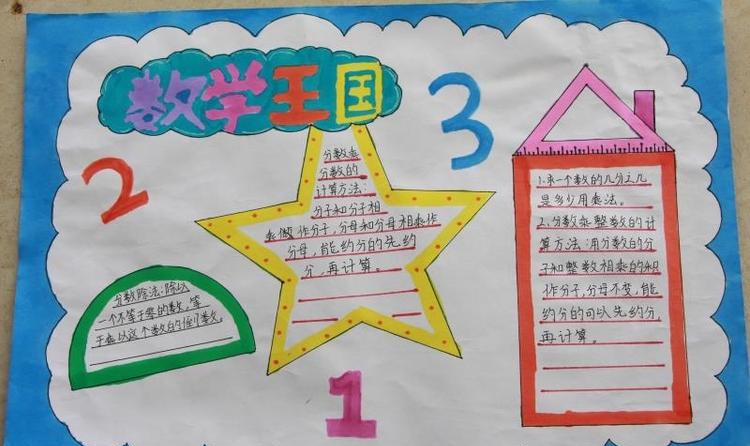 数学王国
3
2
分数乘
分数的
计算方法：
分子和分子相
乘做作分子，分母和分母相乘作
分母，能约分的先约
分，再计算。
1.求一个数的几分之几
是多少用乘法。
2.分数乘整数的计
算方法：用分数的分
子和整数相乘的积
作分子，分母不变，能
约分的可以先约分，
再计算。
分数除法：除以
一个不等于零的数，等
于乘以这个数的倒数。
1